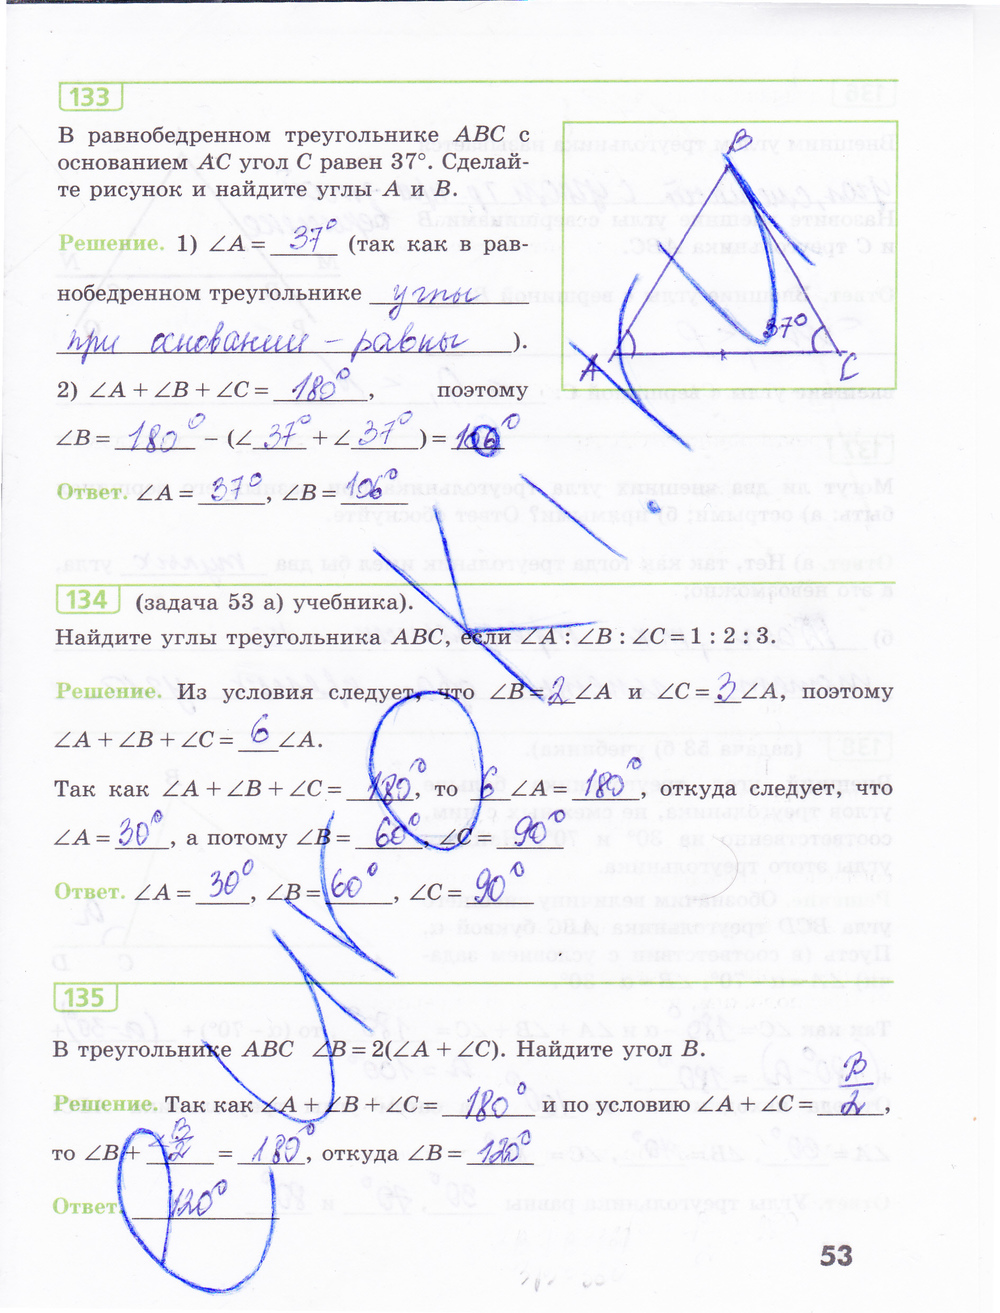 133
В равнобедренном треугольнике ABC с
основанием AC угол C равен 37°. Сделай-
те рисунок и найдите углы A и B.
Решение. 1) ∠A = 37° (так как в рав-
нобедренном треугольнике углы
при основании – равны ).
2) ∠A + ∠B + ∠C = 180°, поэтому
∠B = 180° – (∠ 37° + ∠ 37° ) = 106°
Ответ. ∠A = 37°, ∠B = 106°
B
37°
A
C
134 (задача 53 а) учебника).
Найдите углы треугольника ABC, если ∠A : ∠B : ∠C = 1 : 2 : 3.
Решение. Из условия следует, что ∠B = 2 ∠A и ∠C = 3 ∠A, поэтому
∠A + ∠B + ∠C = 6 ∠A.
Так как ∠A + ∠B + ∠C = 180°, то 6 ∠A = 180°, откуда следует, что
∠A = 30°, а потому ∠B = 60°, ∠C = 90°
Ответ. ∠A = 30°, ∠B = 60°, ∠C = 90°
135
В треугольнике ABC ∠B = 2(∠A + ∠C). Найдите угол B.
Решение. Так как ∠A + ∠B + ∠C = 180° и по условию ∠A + ∠C = B/2,
то ∠B + ∠B/2 = 180°, откуда ∠B = 120°
Ответ. 120°
53